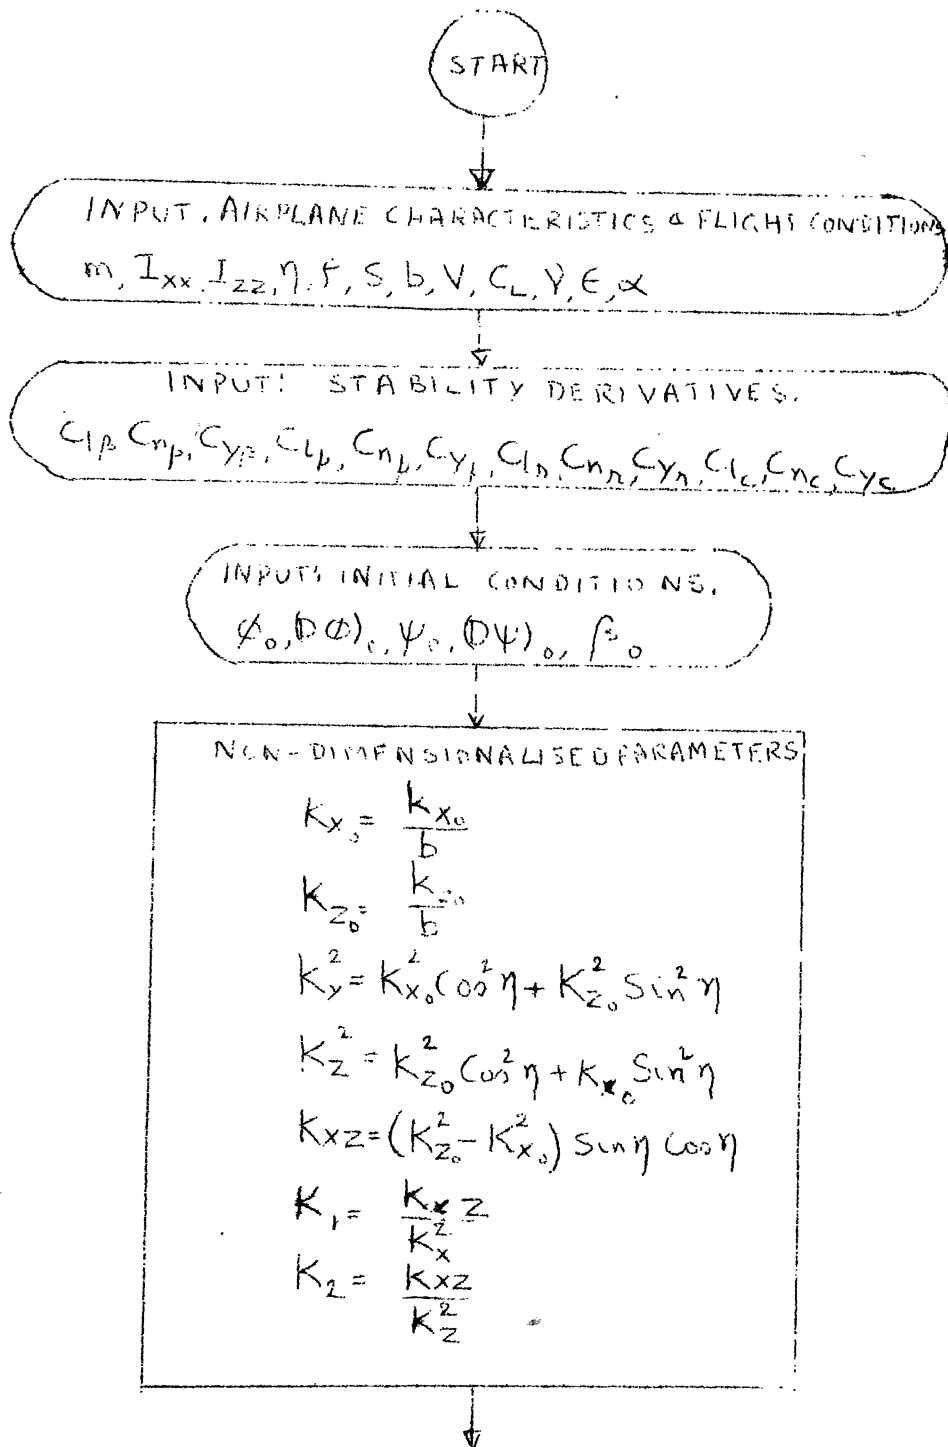 START
INPUT. AIRPLANE CHARACTERISTICS & FLIGHT CONDITIONS
m, I_xx, I_zz, η, ρ, S, b, V, C_L, γ, ϵ, α
INPUT: STABILITY DERIVATIVES.
C_lβ C_nβ, C_yβ, C_lp, C_np, C_yp, C_lr, C_nr, C_yr, C_lc, C_nc, C_yc
INPUT: INITIAL CONDITIONS.
φ_0, (Dφ)_0, ψ_0, (Dψ)_0, β_0
NON-DIMENSIONALISED PARAMETERS
K_x_0 = k_x_0 / b
K_z_0 = k_z_0 / b
K_x^2 = K_x_0^2 Cos^2 η + K_z_0^2 Sin^2 η
K_z^2 = K_z_0^2 Cos^2 η + K_x_0 Sin^2 η
K_xz = (K_z_0^2 - K_x_0^2) Sin η Cos η
K_1 = K_xz / K_x^2
K_2 = K_xz / K_z^2